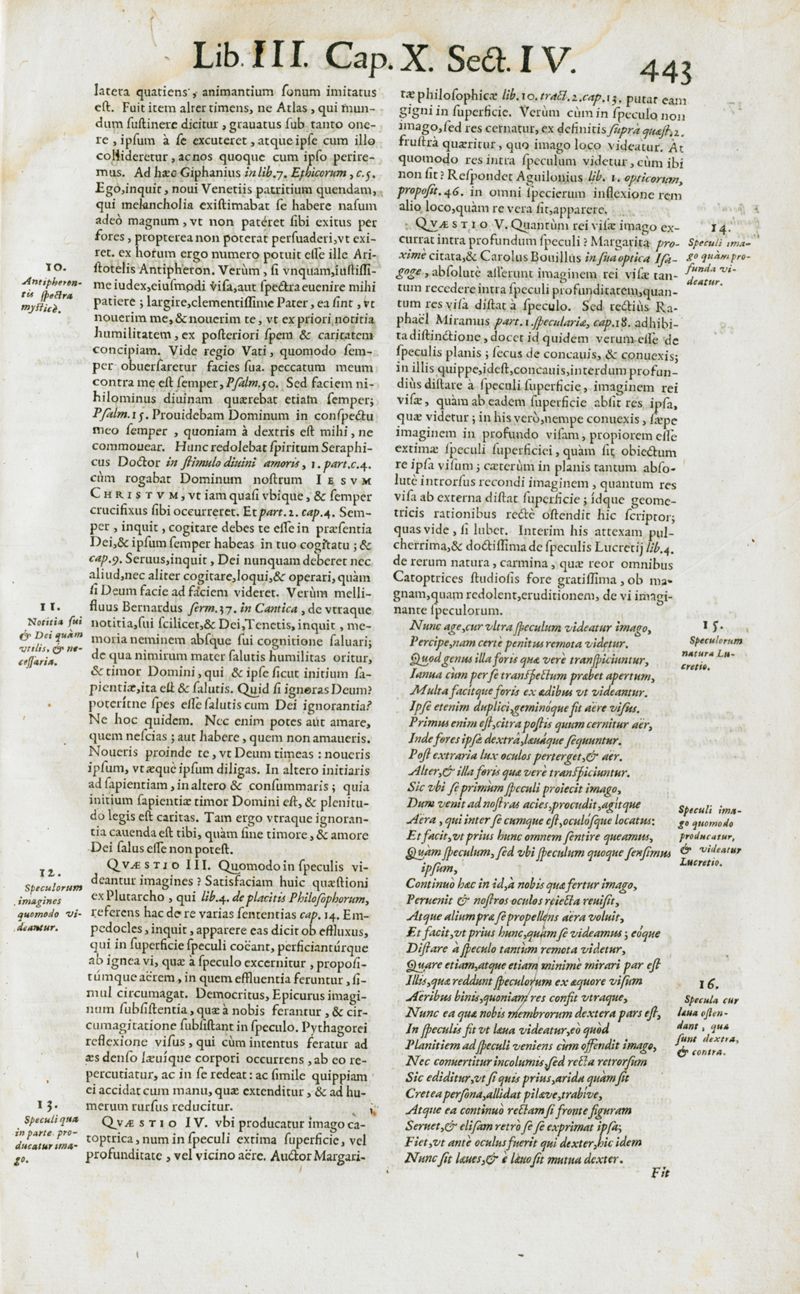 Lib. III. Cap. X. Sect. IV. 443
latera quatiens, animantium sonum imitatus
est. Fuit item alter timens, ne Atlas, qui mun-
dum sustinere dicitur, grauatus sub tanto one-
re, ipsum à se excuteret, atque ipse cum illo
collideretur, ac nos quoque cum ipso perire-
mus. Ad hæc Giphanius in lib. 7. Ethicorum, c. 5.
Ego, inquit, noui Venetiis patritium quendam,
qui melancholia existimabat se habere nasum
adeò magnum, vt non patéret sibi exitus per
fores, propterea non poterat persuaderi, vt exi-
ret. ex horum ergo numero potuit esse ille Ari-
stotelis Antipheron. Verùm, si vnquam, iustissi-
me iudex, eiusmodi visa, aut spectra euenire mihi
patiere; largire, clementissime Pater, ea sint, vt
nouerim me, & nouerim te, vt ex priori notitia
humilitatem, ex posteriori spem & caritatem
concipiam. Vide regio Vati, quomodo sem-
per obuersaretur facies sua. peccatum meum
contra me est semper, Psalm. 50. Sed faciem ni-
hilominus diuinam quærebat etiam semper;
Psalm. 15. Prouidebam Dominum in conspectu
meo semper, quoniam à dextris est mihi, ne
commouear. Hunc redolebat spiritum Seraphi-
cus Doctor in stimulo diuini amoris, 1. part. c. 4.
cùm rogabat Dominum nostrum IESVM
CHRISTVM, vt iam quasi vbique, & semper
crucifixus sibi occurreret. Et part. 2. cap. 4. Sem-
per, inquit, cogitare debes te esse in præsentia
Dei, & ipsum semper habeas in tuo cogitatu; &
cap. 9. Seruus, inquit, Dei nunquam deberet nec
aliud, nec aliter cogitare, loqui, & operari, quàm
si Deum facie ad faciem videret. Verùm melli-
fluus Bernardus serm. 37. in Cantica, de vtraque
notitia, sui scilicet, & Dei, Tenetis, inquit, me-
moria neminem absque sui cognitione saluari;
de qua nimirum mater salutis humilitas oritur,
& timor Domini, qui & ipse sicut initium sa-
pientiæ, ita est & salutis. Quid si ignoras Deum?
poteritne spes esse salutis cum Dei ignorantia?
Ne hoc quidem. Nec enim potes aut amare,
quem nescias; aut habere, quem non amaueris.
Noueris proinde te, vt Deum timeas: noueris
ipsum, vt æquè ipsum diligas. In altero initiaris
ad sapientiam, in altero & consummaris; quia
initium sapientiæ timor Domini est, & plenitu-
do legis est caritas. Tam ergo vtraque ignoran-
tia cauenda est tibi, quàm sine timore, & amore
Dei salus esse non potest.
QVÆSTIO III. Quomodo in speculis vi-
deantur imagines? Satisfaciam huic quæstioni
ex Plutarcho, qui lib. 4. de placitis Philosophorum,
referens hac de re varias sententias cap. 14. Em-
pedocles, inquit, apparere eas dicit ob effluxus,
qui in superficie speculi coëant, perficianturque
ab ignea vi, quæ à speculo excernitur, proposi-
túmque aërem, in quem effluentia feruntur, si-
mul circumagat. Democritus, Epicurus imagi-
num subsistentia, quæ à nobis ferantur, & cir-
cumagitatione subsistant in speculo. Pythagorei
reflexione visus, qui cùm intentus feratur ad
æs denso læuíque corpori occurrens, ab eo re-
percutiatur, ac in se redeat: ac simile quippiam
ei accidat cum manu, quæ extenditur, & ad hu-
merum rursus reducitur.
QVÆSTIO IV. vbi producatur imago ca-
toptrica, num in speculi extima superficie, vel
profunditate, vel vicino aëre. Auctor Margari-
10.
Antipheron-
tis spectra
mysticè.
11.
Notitia sui
& Dei quàm
vtilis, & ne-
cessaria.
12.
Speculorum
imagines
quomodo vi-
deantur.
13.
Speculi qua
in parte pro-
ducatur ima-
go.
tæ philosophicæ lib. 10. tract. 2. cap. 13. putat eam
gigni in superficie. Verùm cùm in speculo non
imago, sed res cernatur, ex definitis supra quæst. 2.
frustrà quæritur, quo imago loco videatur. At
quomodo res intra speculum videtur, cùm ibi
non sit? Respondet Aguilonius lib. 1. opticorum,
proposit. 46. in omni specierum inflexione rem
alio loco, quàm re vera sit, apparere.
QVÆSTIO V. Quantùm rei visæ imago ex-
currat intra profundum speculi? Margarita pro-
ximè citata, & Carolus Bouillus in sua optica Isa-
goge, absolutè asserunt imaginem rei visæ tan-
tùm recedere intra speculi profunditatem, quan-
tum res visa distat à speculo. Sed rectiùs Ra-
phaël Miramus part. 1. specularia, cap. 18. adhibi-
ta distinctione, docet id quidem verum esse de
speculis planis; secus de concauis, & conuexis;
in illis quippe, idest, concauis, interdum profun-
diùs distare à speculi superficie, imaginem rei
visæ, quàm ab eadem superficie absit res ipsa,
quæ videtur; in his verò, nempe conuexis, sæpe
imaginem in profundo visam, propiorem esse
extimæ speculi superficiei, quàm sit obiectum
re ipsa visum; cæterùm in planis tantum abso-
lutè introrsus recondi imaginem, quantum res
visa ab externa distat superficie; idque geome-
tricis rationibus rectè ostendit hic scriptor;
quas vide, si lubet. Interim his attexam pul-
cherrima, & doctissima de speculis Lucretij lib. 4.
de rerum natura, carmina, quæ reor omnibus
Catoptrices studiosis fore gratissima, ob ma-
gnam, quam redolent, eruditionem, de vi imagi-
nante speculorum.
Nunc age, cur vltra speculum videatur imago,
Percipe, nam certè penitus remota videtur.
Quod genus illa foris quæ verè transpiciuntur,
Ianua cùm per se transpectum præbet apertum,
Multa facitque foris ex ædibus vt videantur.
Ipse etenim duplici, geminóque fit aëre visus.
Primus enim est, citra postis quum cernitur aër,
Inde fores ipsæ dextrà, lauáque sequuntur.
Post extraria lux oculos perterget, & aër.
Alter, & illa foris quæ verè transpiciuntur.
Sic vbi se primùm speculi proiecit imago,
Dum venit ad nostras acies, procudit, agitque
Aëra, qui inter se cumque est, oculósque locatus:
Et facit, vt prius hunc omnem sentire queamus,
Quàm speculum, sed vbi speculum quoque sensimus
ipsum,
Continuo hæc in id, à nobis quæ fertur imago,
Peruenit & nostros oculos reiecta reuisit,
Atque alium præ se propellens aëra voluit,
Et facit, vt prius hunc, quàm se videamus; eóque
Distare à speculo tantùm remota videtur,
Quare etiam, atque etiam minimè mirari par est
Illis, quæ reddunt speculorum ex æquore visum
Aëribus binis, quoniam res confit vtraque,
Nunc ea quæ nobis membrorum dextera pars est,
In speculis fit vt læua videatur, eò quòd
Planitiem ad speculi veniens cùm offendit imago,
Nec conuertitur incolumis, sed rectà retrorsum
Sic eliditur, vt si quis prius, arida quàm sit
Cretea persona, allidat pilæve, trabive,
Atque ea continuò rectam si fronte figuram
Seruet, & elisam retrò sese exprimat ipsa;
Fiet, vt antè oculus fuerit qui dexter, hic idem
Nunc sit læues, & è læuo sit mutua dexter.
Fit
14.
Speculi ima-
go quàm pro-
funda vi-
deatur.
15.
Speculorum
natura Lu-
cretio.
Speculi ima-
go quomodo
producatur,
& videatur
Lucretio.
16.
Specula cur
læua osten-
dant, quæ
sunt dextra,
& contra.